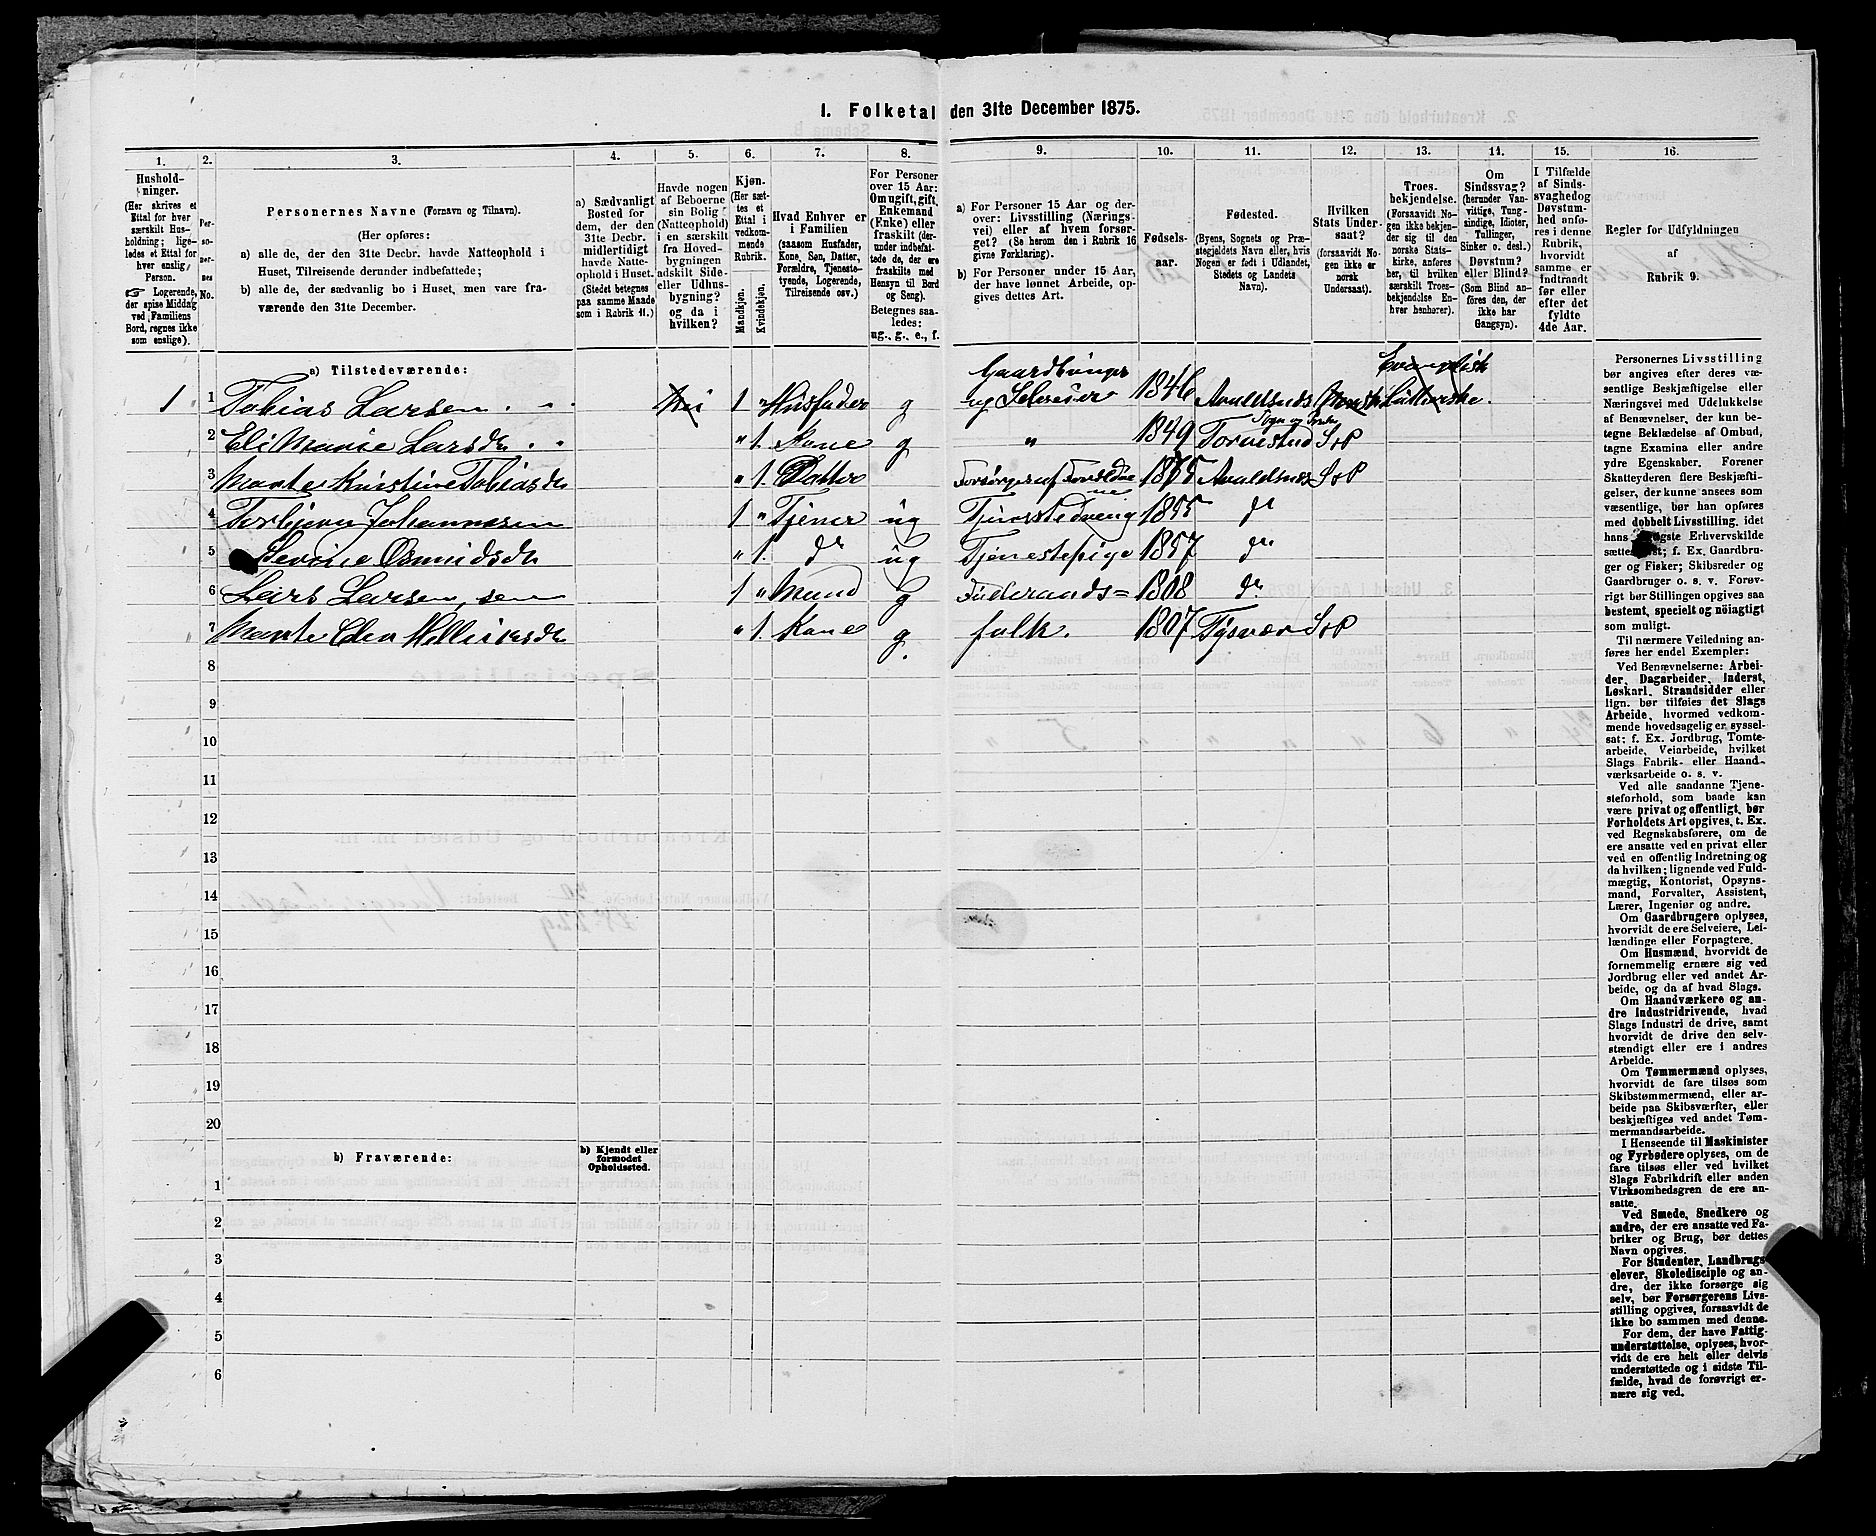 1. Folketal den 31te December 1875.
1. 2. 3. 4. 5. 6. 7. 8. 9. 10. 11. 12. 13. 14. 15. 16.
Hushold-
ninger.
(Her skrives et
Ettal for hver
særskilt Hus-
holdning; lige-
ledes et Ettal for
hver enslig
Person.
☞ Logerende,
der spise Middag
ved Familiens
Bord, regnes ikke
som enslige).
Per-
so-
ner-
nes
No.
Personernes Navne (Fornavn og Tilnavn).
(Her opføres:
a) alle de, der den 31te Decbr. havde Natteophold i
Huset, Tilreisende derunder indbefattede;
b) alle de, der sædvanlig bo i Huset, men vare fra-
værende den 31te December.
a) Sædvanligt
Bosted for
dem, der den
31te Decbr.
midlertidigt
havde Natte-
ophold i Huset.
(Stedet betegnes
paa samme Maade
som i Rubrik 11.)
Havde nogen
af Beboerne
sin Bolig
(Natteophold)
i en særskilt
fra Hoved-
bygningen
adskilt Side-
eller Udhus-
bygning?
og da i
hvilken?
Kjøn.
(Her sæt-
tes et
Ettal i
vedkom-
mende
Rubrik.
Mandkjøn.
Kvindekjøn.
Hvad Enhver er
i Familien
(saasom Husfader,
Kone, Søn, Datter,
Forældre, Tjeneste-
tyende, Logerende,
Tilreisende osv.)
For Personer
over 15 Aar:
Om ugift, gift,
Enkemand
(Enke) eller
fraskilt (der-
under indbefat-
tede de, der ere
fraskilte med
Hensyn til Bord
og Seng).
Betegnes saa-
ledes:
ug., g., e., f.
a) For Personer 15 Aar og der-
over: Livsstilling (Nærings-
vei) eller af hvem forsør-
get? (Se herom den i Rubrik 16
givne Forklaring).
b) For Personer under 15 Aar,
der have lønnet Arbeide, op-
gives dettes Art.
Fødsels-
aar.
Fødested.
(Byens, Sognets og Præ-
stegjeldets Navn eller, hvis
Nogen er født i Udlandet,
Stedets og Landets
Navn).
Hvilken
Stats Under-
saat?
(forsaavidt No-
gen ikke er
norsk
Undersaat).
Troes-
bekjendelse.
(Forsaavidt No-
gen ikke bekjen-
der sig til den
norske Stats-
kirke, anføres
her, til hvilken
særskilt Troes-
bekjendelse En-
hver henhører).
Om
Sindssvag?
(herunder Van-
vittige, Tung-
sindige, Idioter,
Tullinger,
Sinker o. desl.)
Døvstum?
eller Blind?
(Som Blind an-
føres den, der
ikke har
Gangsyn).
I Tilfælde
af Sinds-
svaghed og
Døvstum-
hed anfø-
res i denne
Rubrik,
hvorvidt
samme er
indtraadt
før eller
efter det
fyldte
4de Aar.
Regler for Udfyldningen
af
Rubrik 9.
a) Tilstedeværende:
1 1 Tobias Larsen 1 " Husfader g Gaardbruger og Selveier 1846 Avaldsnes Norsk Evangelisk Lutherske.
2 Eli Marie Larsdr " 1. Kone g " 1849 Torvestad Sogn og S&P
3 Marte Kristine Tobiasdr " 1. Datter Forsørges af Forældrene 1875 Avaldsnes S&P
4 Torbjørn Johannesen 1 " Tjener ug Tjenestedreng 1855 do
5 Sevrine Osmundsdr " 1. do ug Tjenestepige 1857 do
6 Lars Larsen, sen 1 " Mand g Føderaads= 1808 do
7 Marte Elen " 1. Kone g. folk. 1807 Tysvær S&P
8
9
10
11
12
13
14
15
16
17
18
19
20
b) Fraværende:
b) Kjendt eller
formodet
Opholdssted.
1
2
3
4
5
6
Personernes Livsstilling
bør angives efter deres væ-
sentlige Beskjæftigelse eller
Næringsvei med Udelukkelse
af Benævnelser, der kun be-
tegne Beklædelse af Ombud,
tagne Examina eller andre
ydre Egenskaber. Forener
Skatteyderen flere Beskjæfti-
gelser, der kunne ansees som
væsentlige, bør han opføres
med dobbelt Livsstilling, idet
hans vigtigste Erhvervskilde
sættes først; f. Ex. Gaardbru-
ger og Fisker; Skibsreder og
Gaardbruger o. s. v. Forøv-
rigt bør Stillingen opgives saa
bestemt, specielt og nöiagtigt
som muligt.
Til nærmere Veiledning an-
føres her endel Exempler:
Ved Benævnelserne: Arbei-
der, Dagarbeider, Inderst,
Løskarl, Strandsidder eller
lign. bør tilføies det Slags
Arbeide, hvormed vedkom-
mende hovedsagelig er syssel-
sat; f. Ex. Jordbrug, Tomte-
arbeide, Veiarbeide, hvilket
Slags Fabrik- eller Haand-
værksarbeide o. s. v.
Ved alle saadanne Tjene-
steforhold, som baade kan
være privat og offentligt, bør
Forholdets Art opgives, t. Ex.
ved Regnskabsførere, om de
ere ansatte ved en privat eller
ved en offentlig Indretning og
da hvilken; lignende ved Fuld-
mægtig, Kontorist, Opsyns-
mand, Forvalter, Assistent,
Lærer, Ingeniør og andre.
Om Gaardbrugere oplyses,
hvorvidt de ere Selveiere, Lei-
lændinge eller Forpagtere.
Om Husmænd, hvorvidt de
fornemmelig ernære sig ved
Jordbrug eller ved andet Ar-
beide, og da af hvad Slags.
Om Haandværkere og an-
dre Industridrivende, hvad
Slags Industri de drive, samt
hvorvidt de drive den selv-
stændigt eller ere i andres
Arbeide.
Om Tømmermænd oplyses,
hvorvidt de fare tilsøs som
Skibstømmermænd, eller ar-
beide paa Skibsværfter, eller
beskjæftiges ved andet Tøm-
mermandsarbeide.
I Henseende til Maskinister
og Fyrbødere oplyses, om de
fare tilsøs eller ved hvilket
Slags Fabrikdrift eller anden
Virksomhedsgren de ere an-
satte.
Ved Smede, Snedkere og
andre, der ere ansatte ved Fa-
briker og Brug, bør dettes
Navn opgives.
For Studenter, Landbrugs-
elever, Skoledisciple og an-
dre, der ikke forsørge sig
selv, bør Forsørgerens Livs-
stilling opgives, forsaavidt de
ikke bo sammen med denne.
For dem, der have Fattig-
understøttelse, oplyses, hvor-
vidt de ere helt eller delvis
understøttede og i sidste Til-
fælde, hvad de forøvrigt er-
nære sig ved.